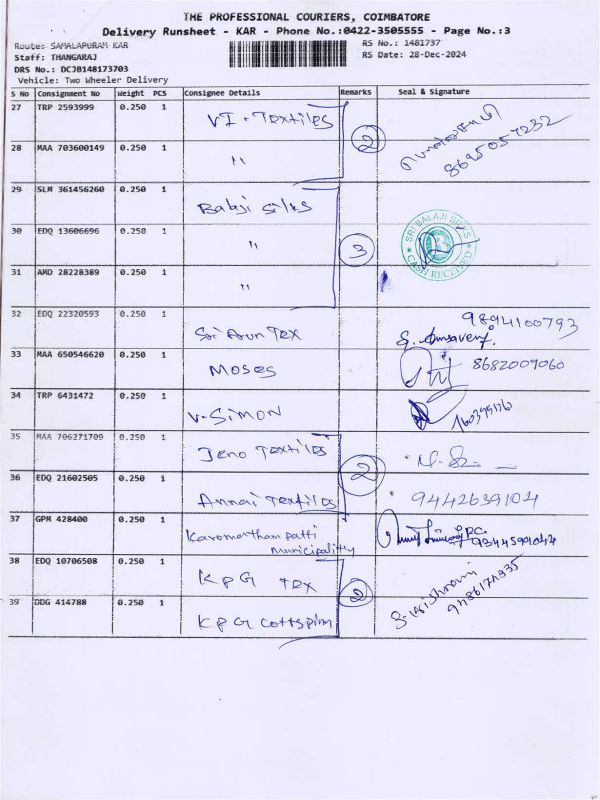 THE PROFESSIONAL COURIERS, COIMBATORE
Delivery Runsheet - KAR - Phone No.:0422-3505555 - Page No.:3
Route: SAMALAPURAM KAR
RS No.: 1481737
Staff: THANGARAJ
RS Date: 28-Dec-2024
DRS No.: DCJB148173703
Vehicle: Two Wheeler Delivery
S No Consignment No Weight PCS Consignee Details Remarks Seal & Signature
27 TRP 2593999 0.250 1 VI. Textiles
2
8695057232
28 MAA 703600149 0.250 1 "
29 SLM 361456260 0.250 1 Balaji Silks
30 EDQ 13606696 0.250 1 " 3 SRI BALAJI SILKS CASH RECEIVED
31 AMD 28228389 0.250 1 "
32 EDQ 22320593 0.250 1 Sri Arun Tex 9894100793
33 MAA 650546620 0.250 1 Moses 8682009060
34 TRP 6431472 0.250 1 V. Simon
35 MAA 706271709 0.250 1 Jeno Textiles
2
36 EDQ 21602505 0.250 1 Annai Textiles 9442639104
37 GPM 428400 0.250 1 Karomathampatti
municipality
38 EDQ 10706508 0.250 1 KPG Tex
2
39 DDG 414788 0.250 1 KPG Cottspinn